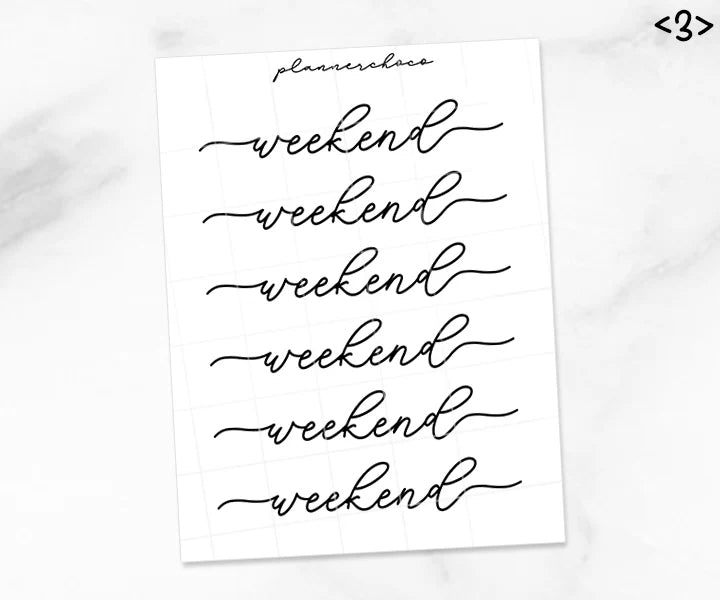 <3>
plannerchoco
weekend
weekend
weekend
weekend
weekend
weekend